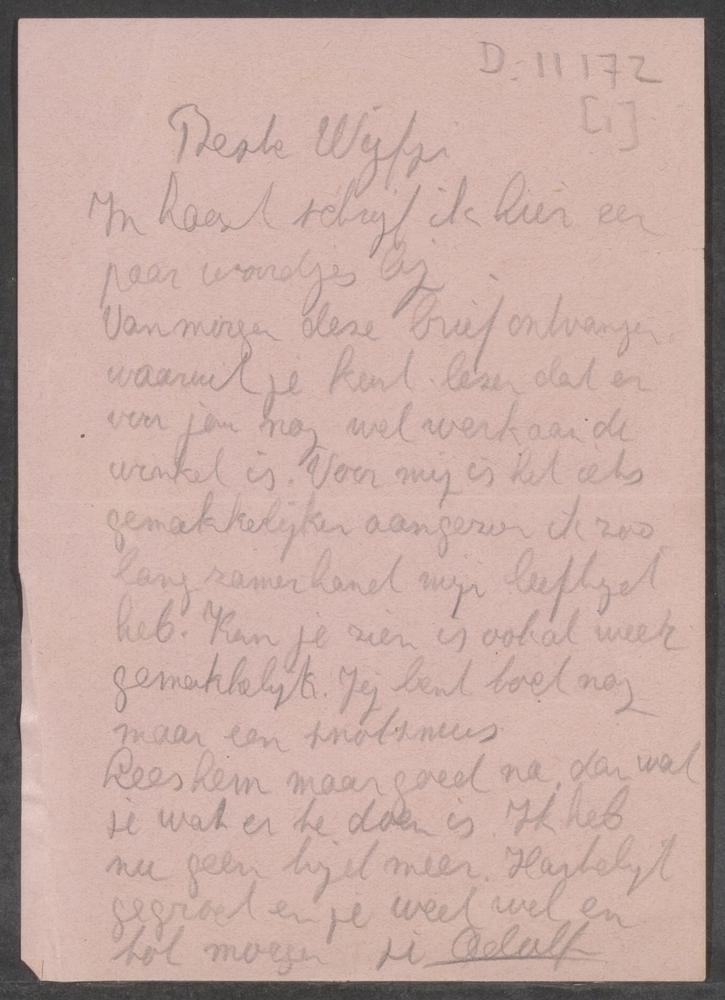 D. 11172
[1]
Beste Wijfje
In haast schrijf ik hier een
paar woordjes bij.
Van morgen deze brief ontvangen
waaruit je kunt lezen dat er
voor jou nog wel werk aan de
winkel is. Voor mij is het iets
gemakkelijker aangezien ik zoo
langzamerhand mijn leeftijd
heb. Kan je zien is ook al weer
gemakkelijk. Jij bent toch nog
maar een snotneus
Lees hem maar goed na, dan weet
je wat er te doen is. Ik heb
nu geen tijd meer. Hartelijk
gegroet en je weet wel en
tot morgen je Adolf